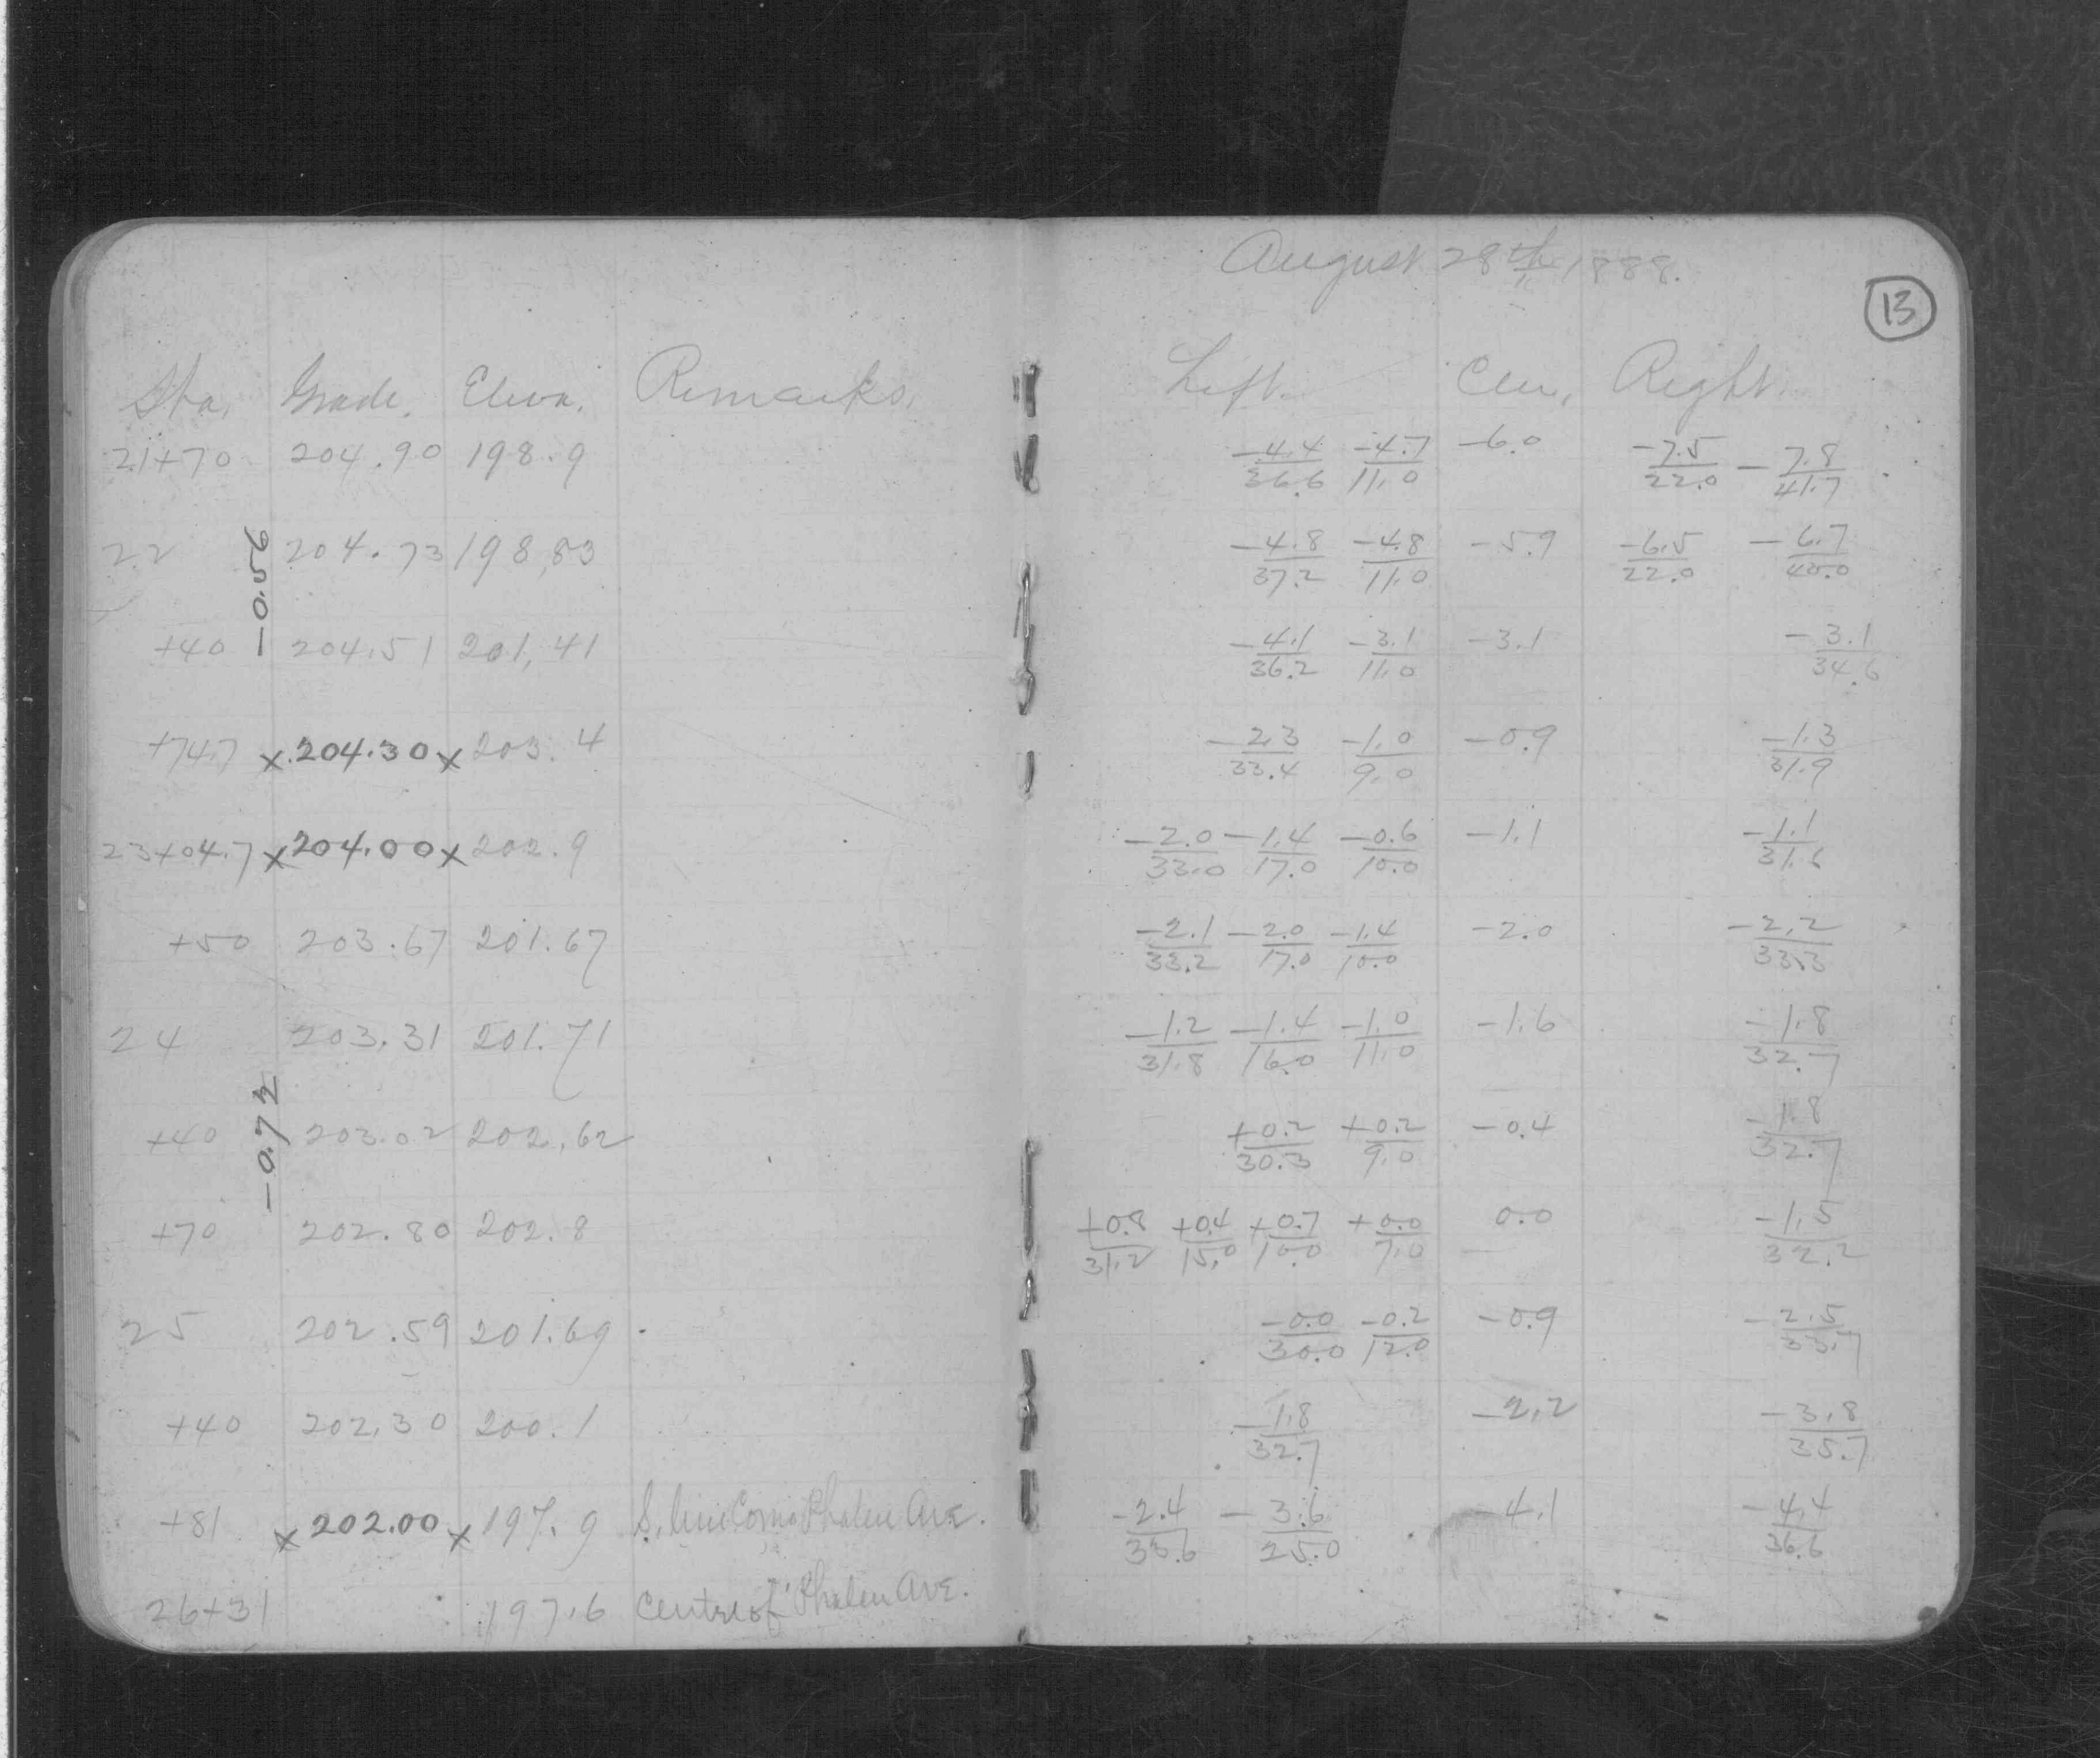 August 28th 1888.
13
Sta. Grade. Eleva. Remarks.
Left. Cen. Right.
21+70 204.90 198.9
-4.4/36.6 -4.7/11.0 -6.0 -7.5/22.0 -7.8/41.7
-0.56
22 204.73 198.83
-4.8/37.2 -4.8/11.0 -5.9 -6.5/22.0 -6.7/40.0
+40 204.51 201.41
-4.1/36.2 -3.1/11.0 -3.1 -3.1/34.6
+74.7 x 204.30 x 203.4
-2.3/33.4 -1.0/9.0 -0.9 -1.3/31.9
23+04.7 x 204.00 x 202.9
-2.0/33.0 -1.4/17.0 -0.6/10.0 -1.1 -1.1/31.6
+50 203.67 201.67
-2.1/33.2 -2.0/17.0 -1.4/10.0 -2.0 -2.2/33.3
24 203.31 201.71
-1.2/31.8 -1.4/16.0 -1.0/11.0 -1.6 -1.8/32.7
-0.72
+40 203.02 202.62
+0.2/30.3 +0.2/9.0 -0.4 -1.8/32.7
+70 202.80 202.8
+0.8/31.2 +0.4/15.0 +0.7/10.0 +0.0/7.0 0.0 -1.5/32.2
25 202.59 201.69
-0.0/30.0 -0.2/12.0 -0.9 -2.5/33.7
+40 202.30 200.1
-1.8/32.7 -2.2 -3.8/35.7
+81 x 202.00 x 197.9 S. line Como Phalen Ave.
-2.4/33.6 -3.6/25.0 -4.1 -4.4/36.6
26+31 197.6 Centre of Phalen Ave.